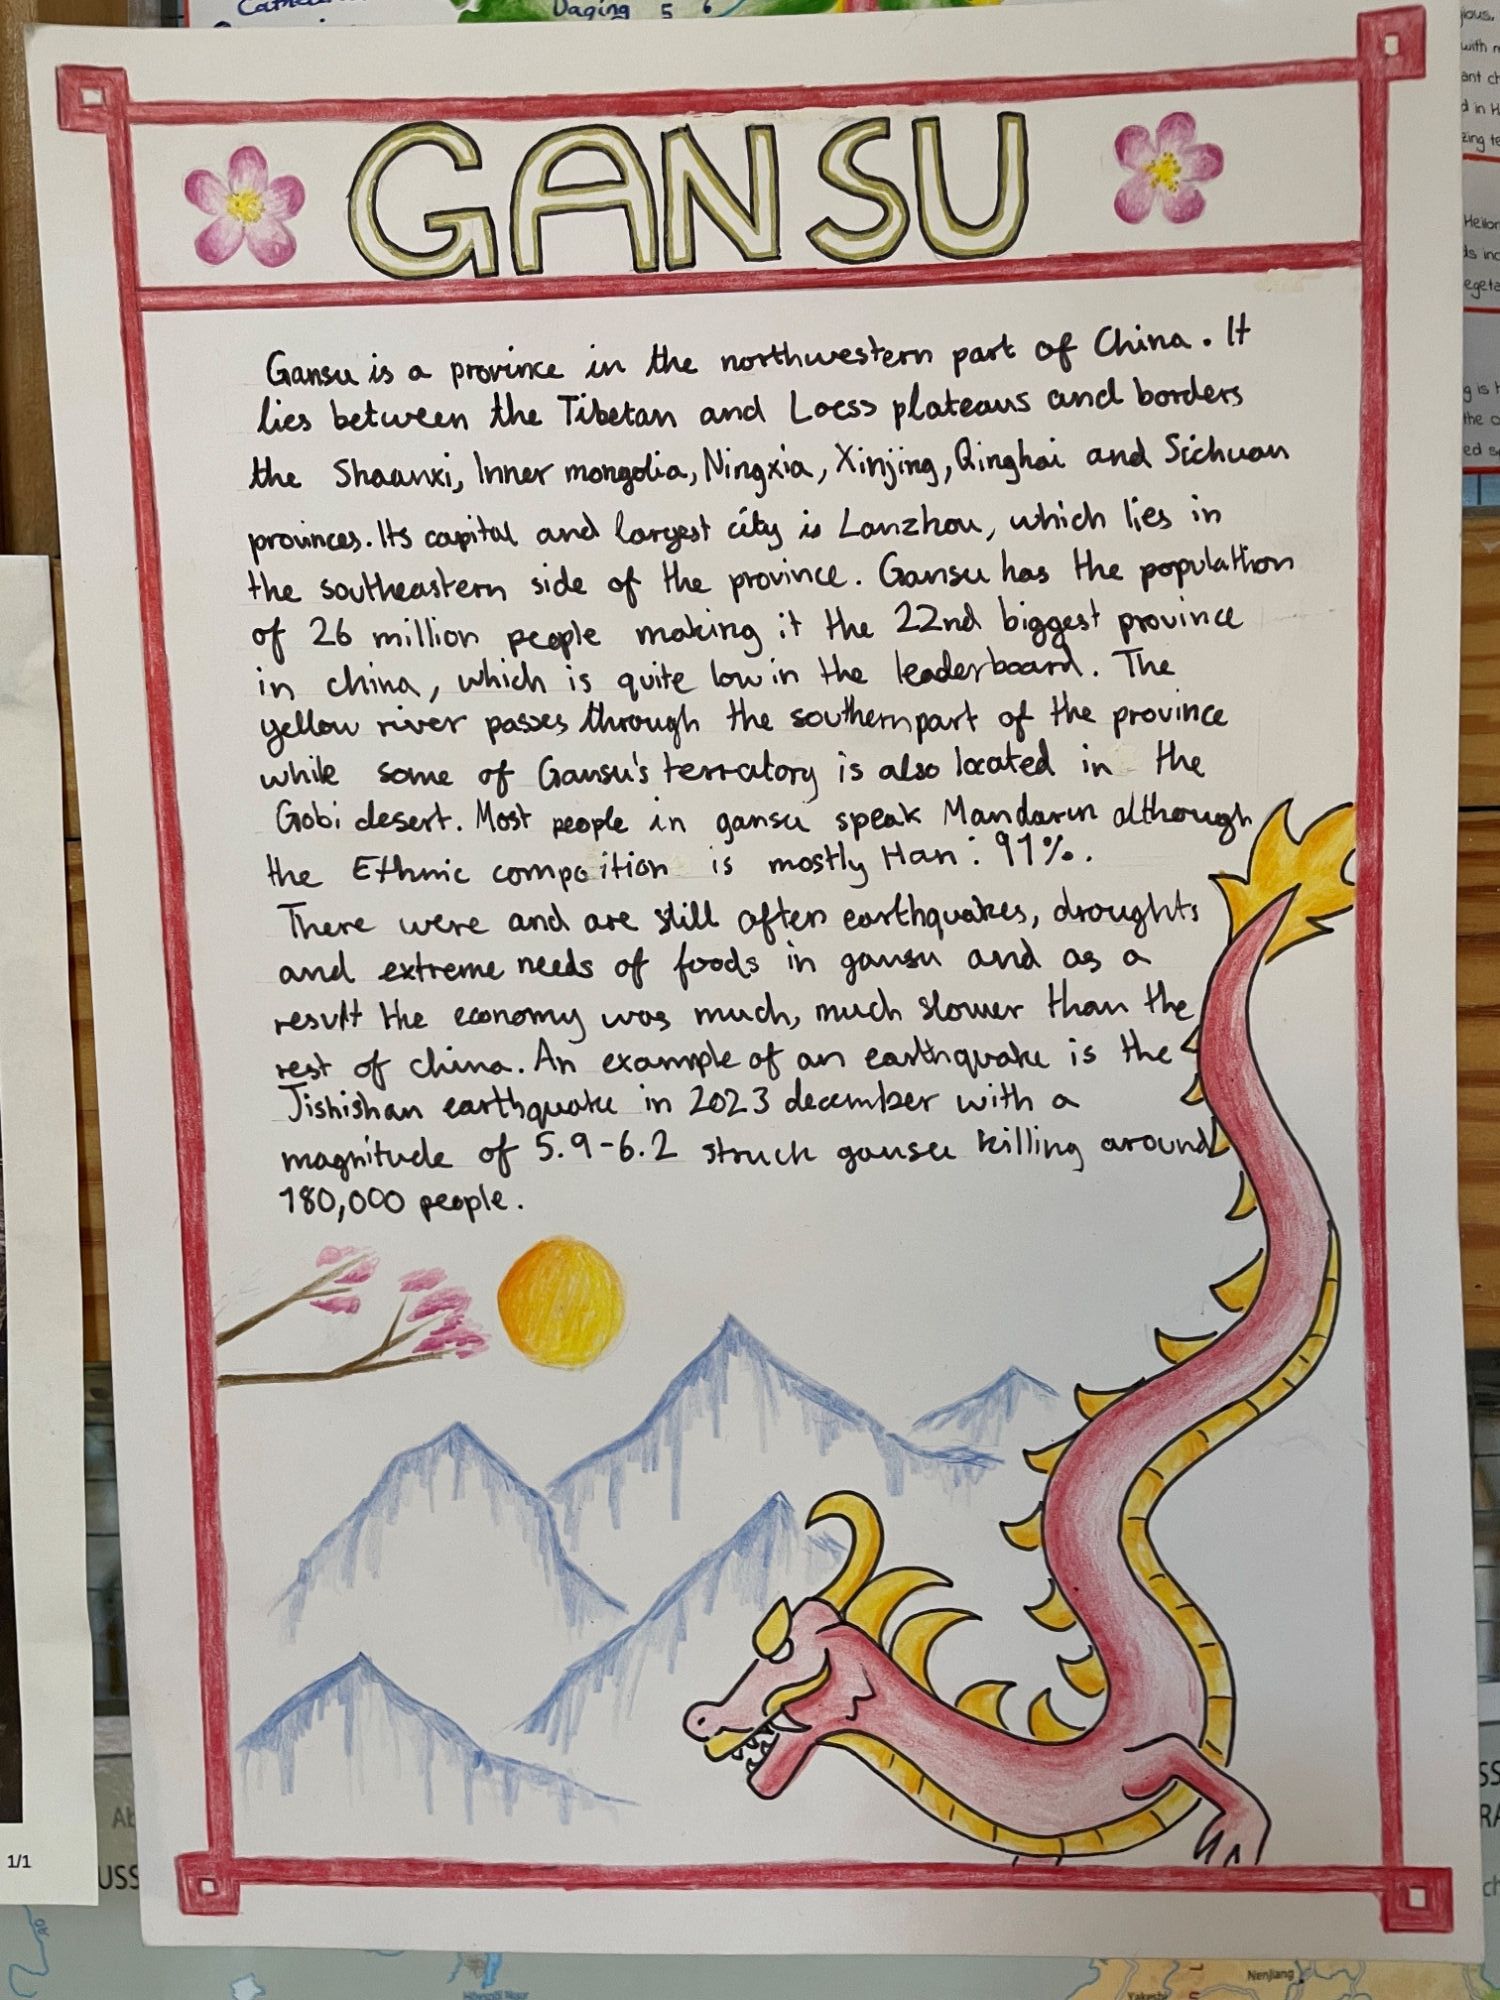 Catha
Daqing 5 6
GANSU
Gansu is a province in the northwestern part of China. It
lies between the Tibetan and Loess plateaus and borders
the Shaanxi, Inner mongolia, Ningxia, Xinjing, Qinghai and Sichuan
provinces. Its capital and largest city is Lanzhou, which lies in
the southeastern side of the province. Gansu has the populathion
of 26 million people making it the 22nd biggest province
in china, which is quite low in the leaderboard. The
yellow river passes through the southern part of the province
while some of Gansu's terratory is also located in the
Gobi desert. Most people in gansu speak Mandarin although
the Ethnic compoition is mostly Han: 91%.
There were and are still often earthquakes, droughts
and extreme needs of foods in gansu and as a
result the economy was much, much slower than the
rest of china. An example of an earthquake is the
Jishishan earthquake in 2023 december with a
magnitude of 5.9-6.2 struck gansu killing around
180,000 people.
gious.
with
ant ch
d in H
zing te
Heilon
ds inc
egeta
g is h
the
ed s
1/1
USS
Nenjiang